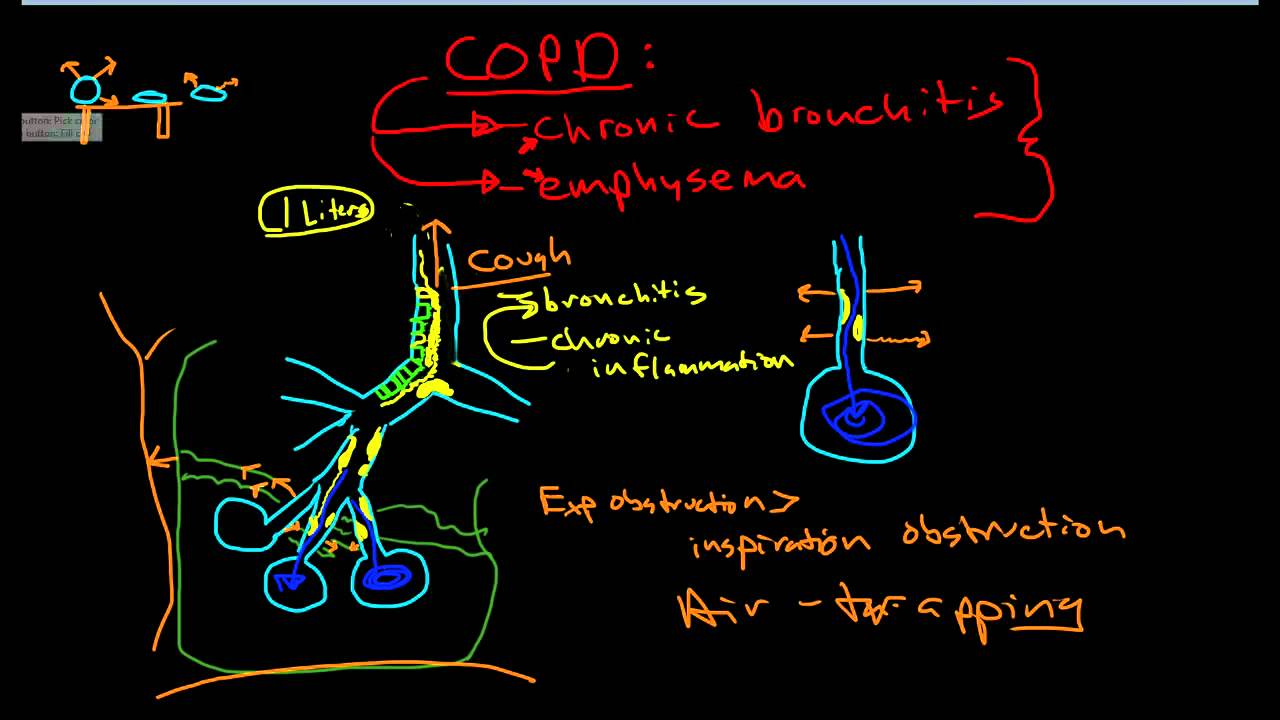 COPD:
chronic bronchitis
emphysema
button: Pick color
button: Fill
1 Liters
Cough
bronchitis
chronic
inflammation
Exp obstruction >
inspiration obstruction
Air - trapping